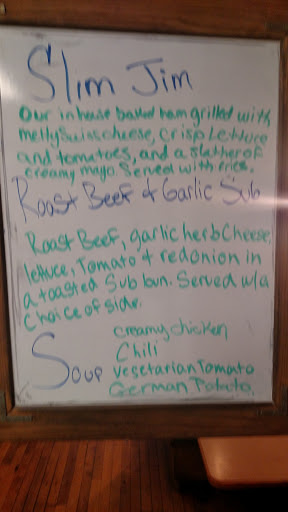 Slim Jim
Our inhouse baked ham grilled with
melty Swiss cheese, crisp Lettuce
and tomatoes, and a slather of
creamy mayo Served with fries.
Roast Beef & Garlic Sub
Roast Beef, garlic herb Cheese,
lettuce, Tomato + red onion in
a toasted Sub bun. Served w/a
Choice of side.
Soup
creamy chicken
Chili
vegetarian Tomato
German Potato.